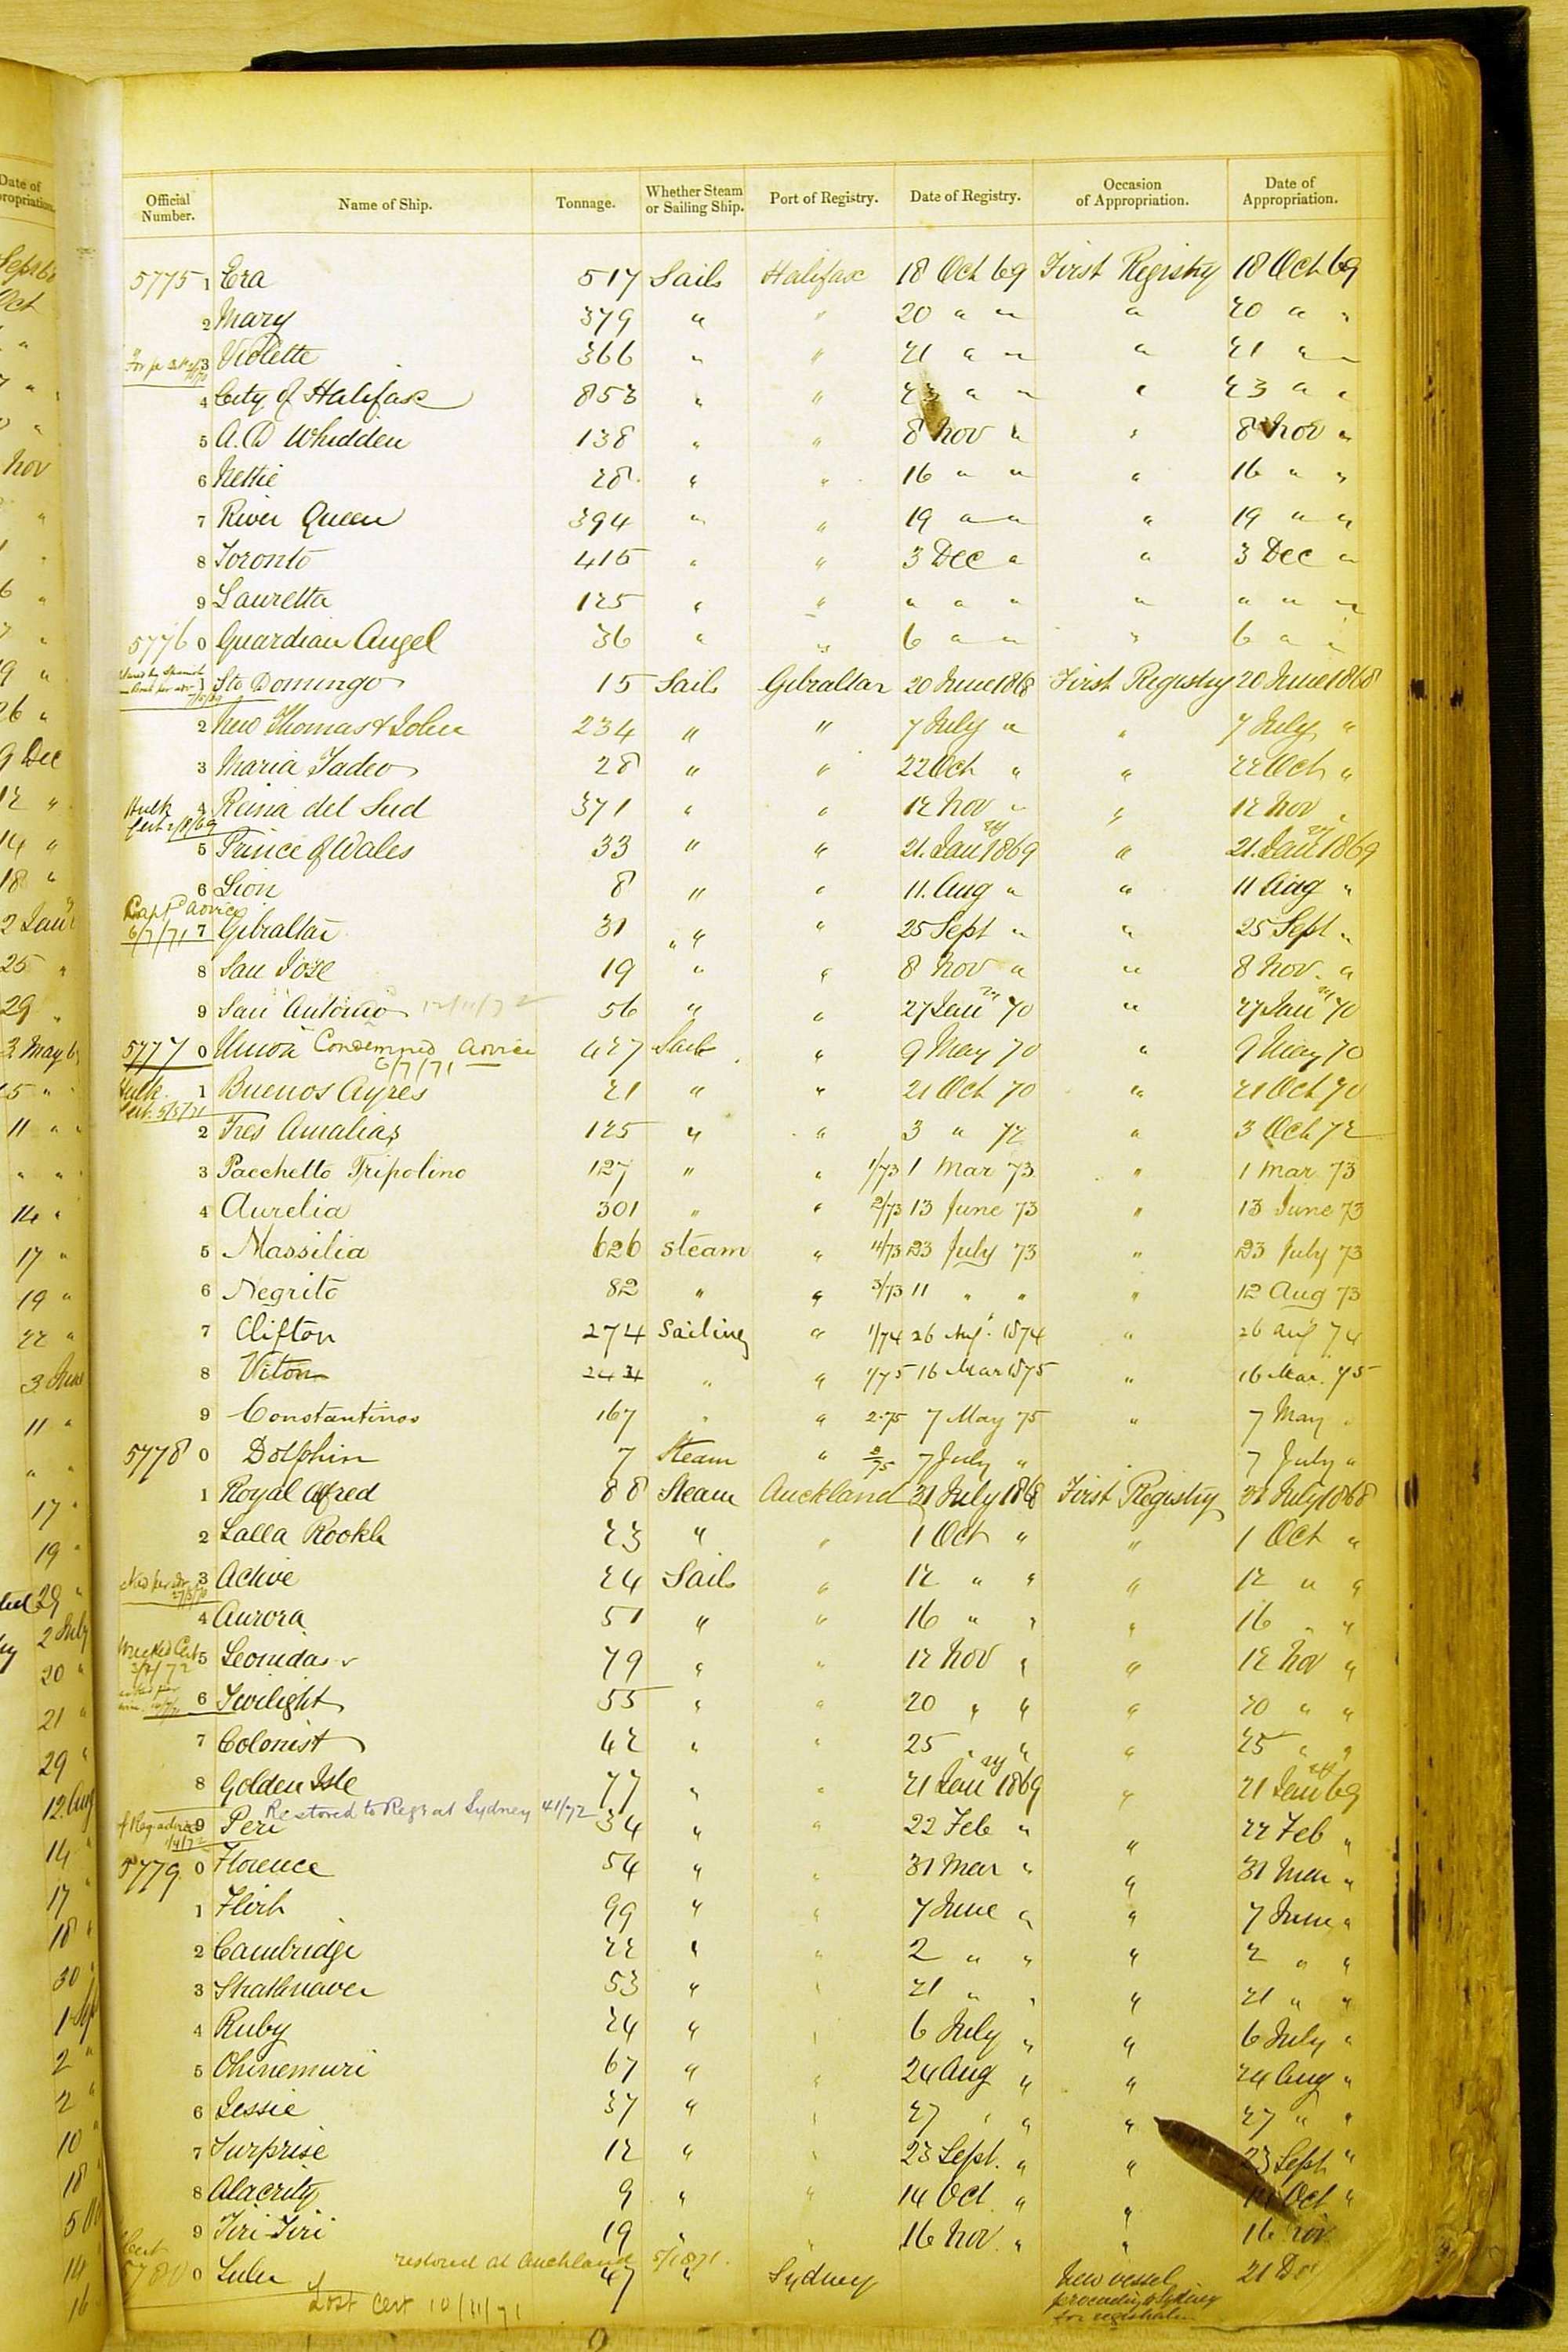 Date of
Official Number. Name of Ship. Tonnage. Whether Steam or Sailing Ship. Port of Registry. Date of Registry. Occasion of Appropriation. Date of Appropriation.
5775 1 Era 517 Sails Halifax 18 Oct 69 First Registry 18 Oct 69
2 Mary 379 " " 20 " " " 20 " "
3 Violette 366 " " 21 " " " 21 " "
4 City of Halifax 853 " " 23 " " " 23 " "
5 A.D Whidden 138 " " 8 Nov " " 8 Nov "
6 Nettie 28 " " 16 " " " 16 " "
7 River Queen 394 " " 19 " " " 19 " "
8 Toronto 415 " " 3 Dec " " 3 Dec "
9 Lauretta 125 " " " " " " " " "
5776 0 Guardian Angel 36 " " 6 " " " 6 " "
1 Sto Domingo 15 Sails Gibraltar 20 June 1868 First Registry 20 June 1868
2 New Thomas & John 234 " " 7 July " " 7 July "
3 Maria Tadeo 28 " " 22 Oct " " 22 Oct "
Hulk 4 Reina del Sud 371 " " 12 Nov " " 12 Nov "
5 Prince of Wales 33 " " 21. Jany 1869 " 21. Jany 1869
6 Lion 8 " " 11. Aug " " 11 Aug "
Capt Advice
6/7/71 7 Gibraltar 31 " " 25 Sept " " 25 Sept "
8 San Jose 19 " " 8 Nov " " 8 Nov. "
9 San Antonio 12/11/72 56 " " 27 Jany 70 " 27 Jany 70
5777 0 Union Condemned Advice 427 Sails " 9 May 70 " 9 May 70
6/7/71
Hulk 1 Buenos Ayres 21 " " 21 Oct 70 " 21 Oct 70
Cert. 5/5/71
2 Tres Amalias 125 " " 3 " 72 " 3 Oct 72
3 Pacchetto Tripolino 127 " " 1/73 1 Mar 73 " 1 Mar 73
4 Aurelia 301 " " 2/73 13 June 73 " 13 June 73
5 Massilia 626 steam " 4/73 23 July 73 " 23 July 73
6 Negrito 82 " " 3/73 11 " " " 12 Aug 73
7 Clifton 274 Sailing " 1/74 26 Aug. 1874 " 26 Aug 74
8 Viton " " 1/75 16 Mar 1875 " 16 Mar. 75
9 Constantinos 167 " " 2.75 7 May 75 " 7 May "
5778 0 Dolphin 7 Steam " 7 July " 7 July "
1 Royal Alfred 88 Steam Auckland 31 July 1868 First Registry 31 July 1868
2 Lalla Rookh 23 " " 1 Oct " " 1 Oct "
3 Active 24 Sails " 12 " " " 12 " "
4 Aurora 51 " " 16 " " " 16 " "
Wrecked Cert 5 Leonidas 79 " " 12 Nov " " 12 Nov "
3/2/72
6 Twilight 55 " " 20 " " " 20 " "
7 Colonist 42 " " 25 " " " 25 " "
8 Golden Isle 77 " " 21 Jany 1869 " 21 Jany 69
Restored to Regr at Sydney 41/72
9 Peri 34 " " 22 Feb " " 22 Feb "
5779 0 Florence 54 " " 31 Mar " " 31 Mar "
1 Flirt 99 " " 7 June " " 7 June "
2 Cambridge 22 " " 2 " " " 2 " "
3 Strathnaver 53 " " 21 " " " 21 " "
4 Ruby 24 " " 6 July " " 6 July "
5 Ohinemuri 67 " " 24 Aug " " 24 Aug "
6 Jessie 37 " " 27 " " " 27 " "
7 Surprise 12 " " 23 Sept. " " 23 Sept "
8 Alacrity 9 " " 14 Oct " " 14 Oct "
9 Tiri Tiri 19 " " 16 Nov. " " 16 Nov
restored at Auckland
5780 0 Lulu 47 " Sydney New vessel 21
Lost Cert 10/11/71 proceeding to Sydney
for registration